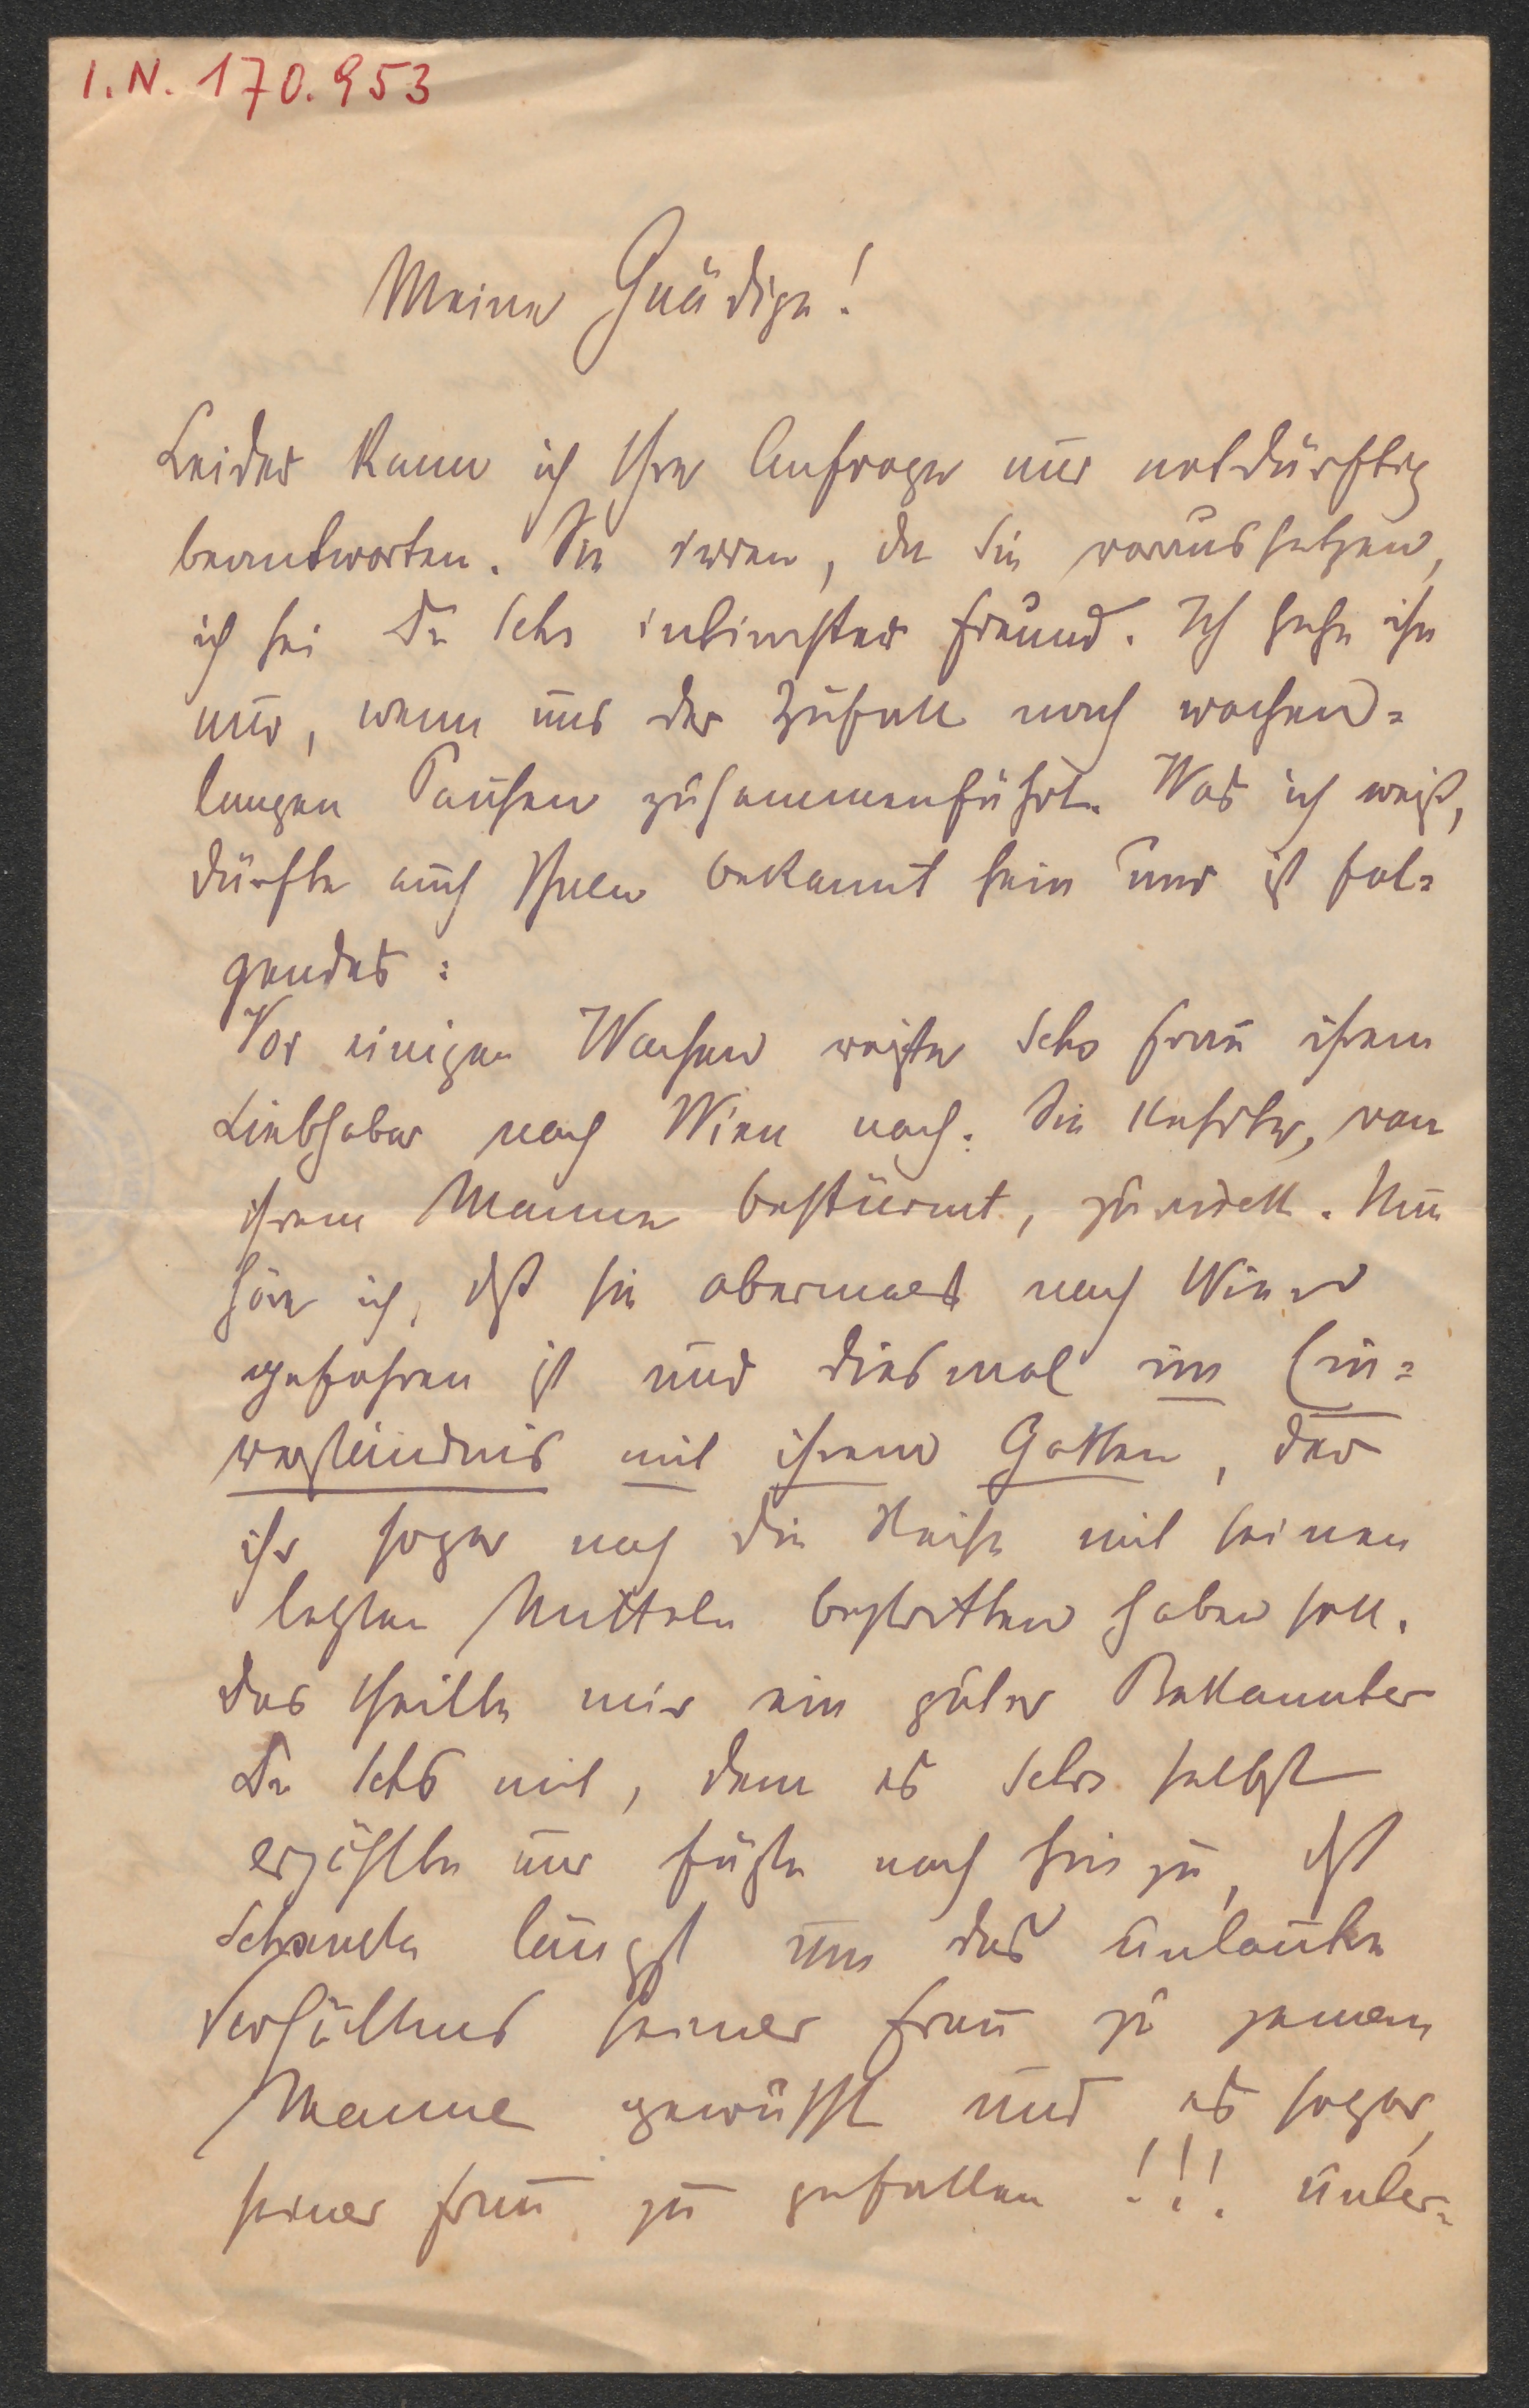 I.N. 170.953
Meine Gnädige!
Leider kann ich Ihre Anfrage nur notdürftig
beantworten. Sie irren, da Sie voraussetzen,
ich sei Dr Schs intimster Freund. Ich sehe ihn
nur, wenn uns der Zufall nach wochen=
langen Pausen zusammenführt. Was ich weiß,
dürfte auch Ihnen bekannt sein und ist fol=
gendes:
Vor einigen Wochen reiste Schs Frau ihrem
Liebhaber nach Wien nach. Sie kehrte, von
ihrem Manne bestürmt, zurück. Nun
höre ich, dß sie abermals nach Wien
gefahren ist und diesmal im Ein=
verständnis mit ihrem Gatten, der
ihr sogar noch die Reise mit seinen
letzten Mitteln bestritten haben soll.
Das theilte mir ein guter Bekannter
Dr Schs mit, dem es Sch selbst
erzählte und fügte noch hinzu, dß
längst um das unlautere
Verhältnis seiner Frau zu jenem
Manne gewußt und es sogar,
seiner Frau zu gefallen !!! unter=